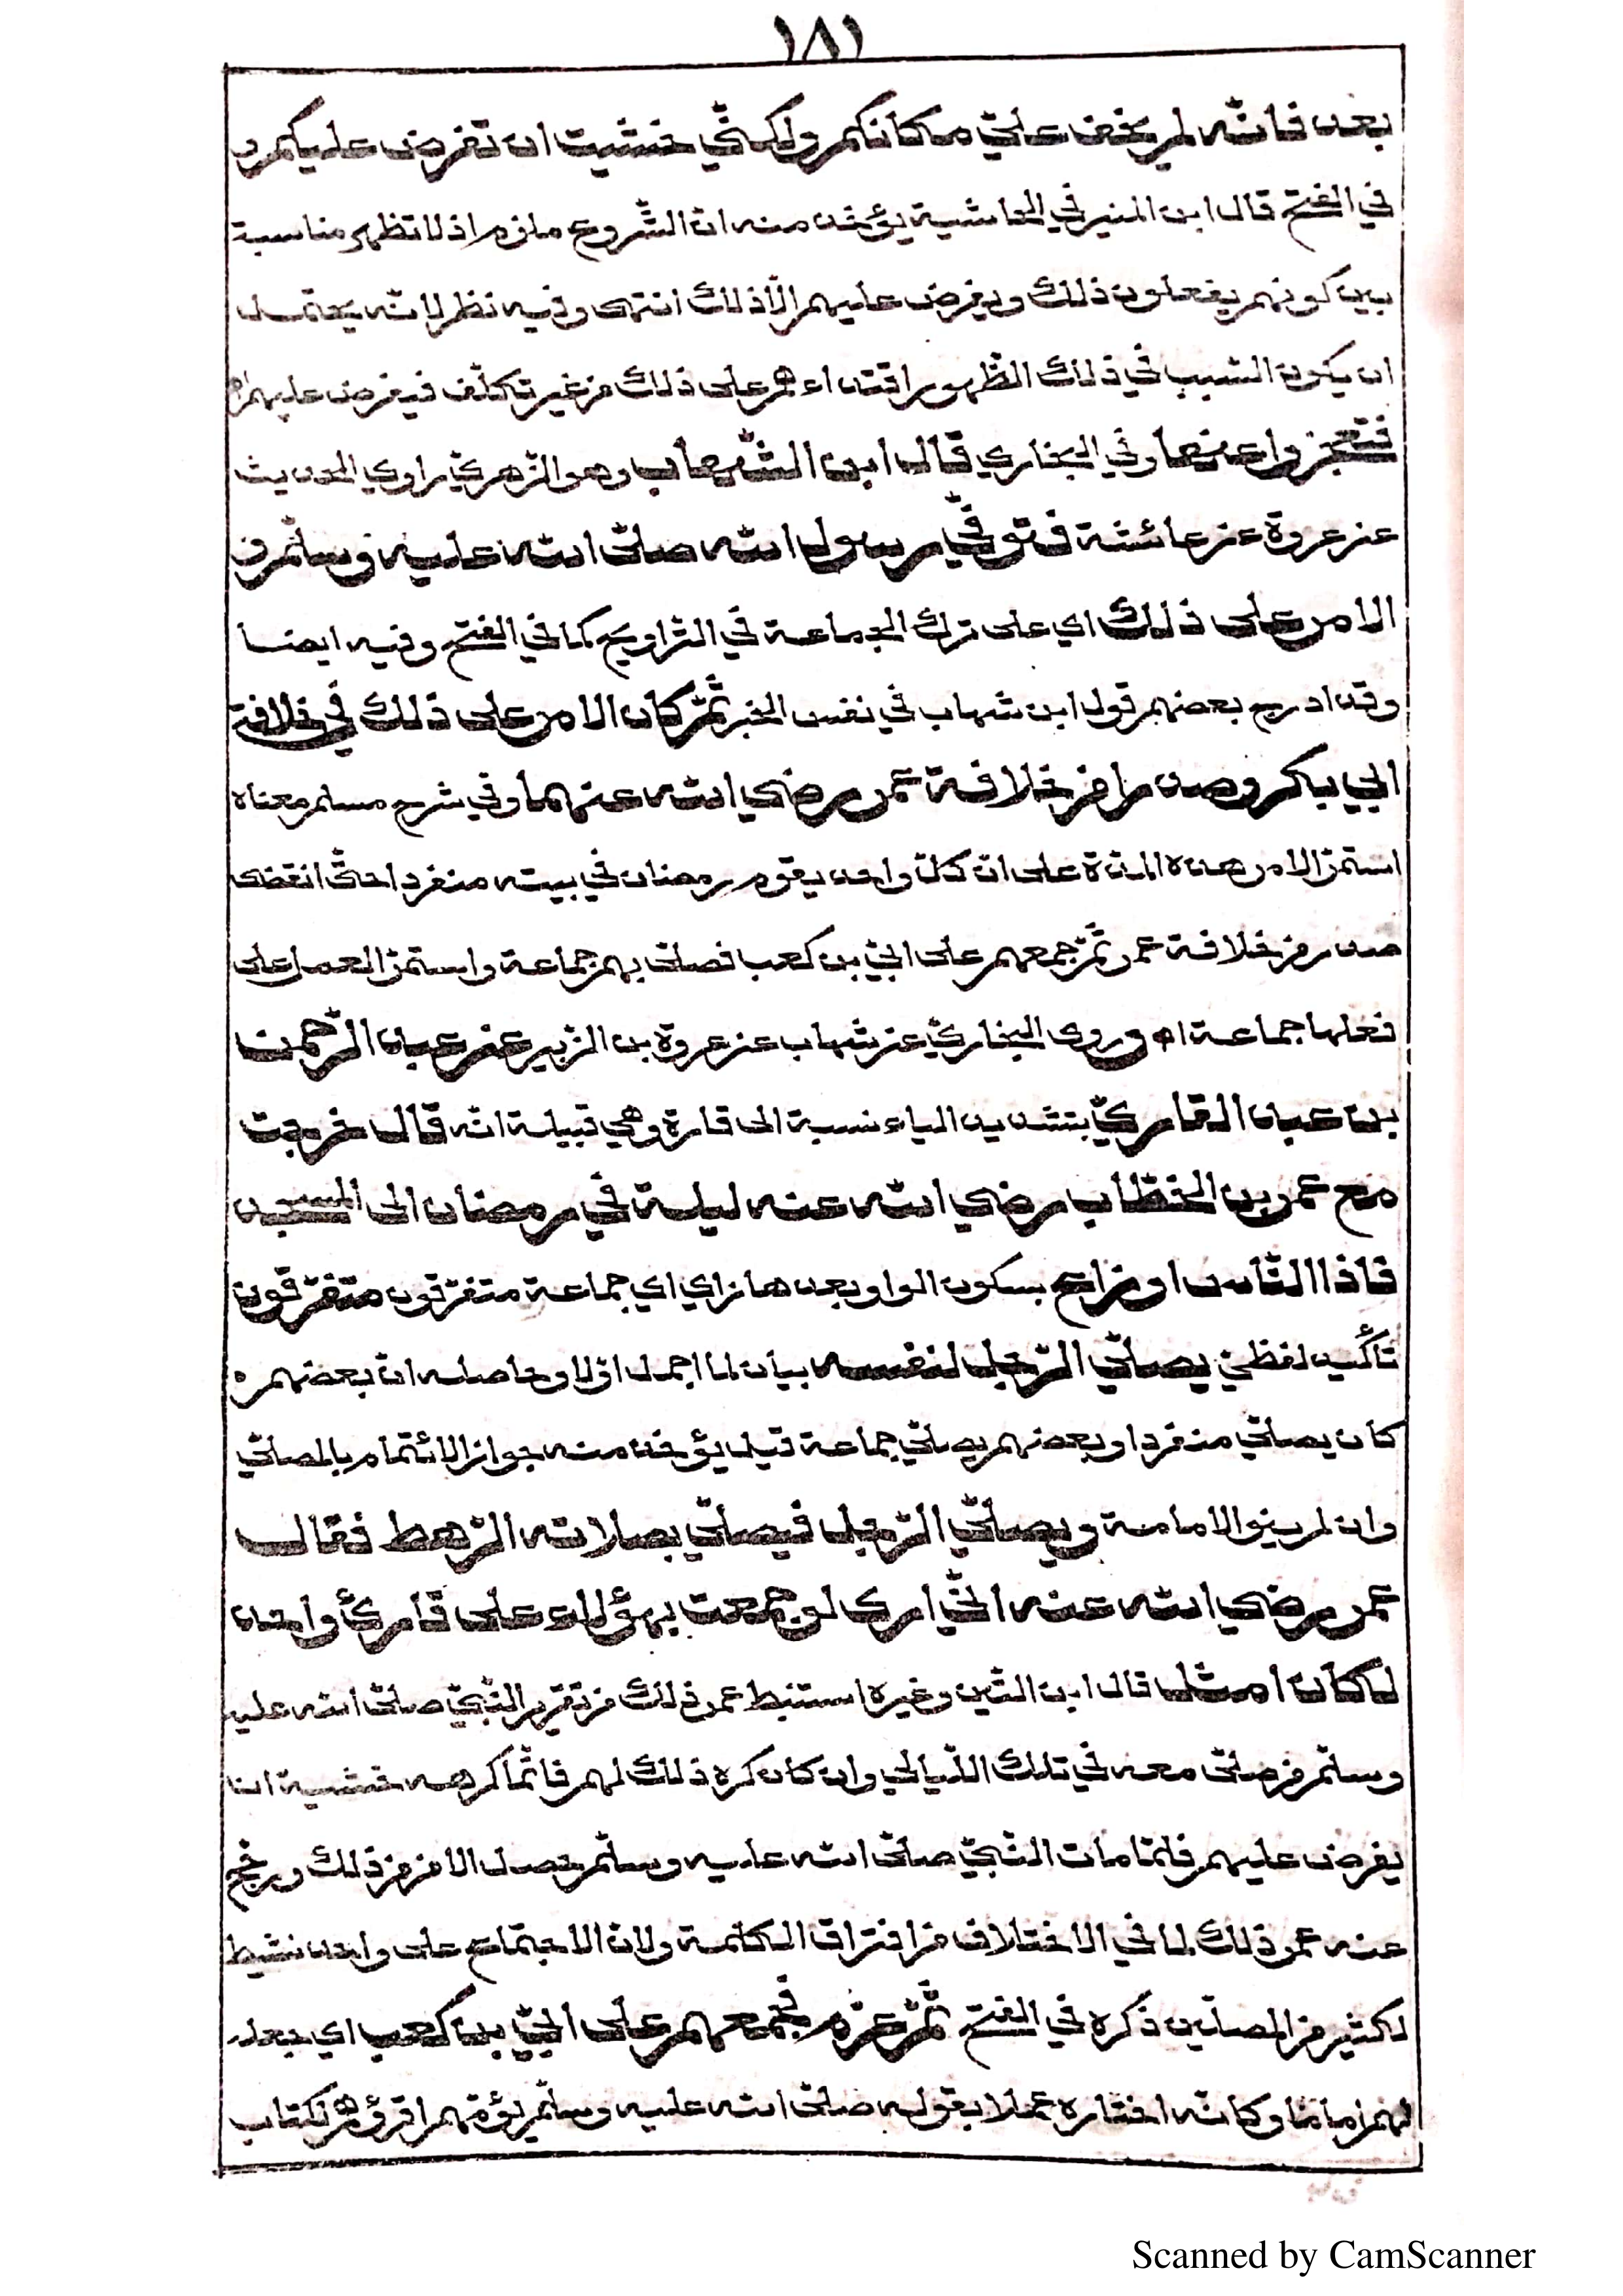 ١٨١
بعد فانّه لم يخف عليّ مكانكم ولكنّي خشيت ان تفرض عليكم و
في الفتح قال ابن المنير في الحاشية يؤخذ منه انّ الشّروع ملزم اذ لا تظهر مناسبة
بين كونهم يفعلون ذلك ويفرض عليهم الّا ذلك انتهى وفيه نظر لانّه يحتمل
ان يكون السّبب في ذلك الظّهور اقتداءهم على ذلك من غير تكلّف فيفرض عليهم اه
فتعجزوا عنها وفي البخاري قال ابن الشّهاب وهو الزّهريّ راوي الحديث
عن عروة عن عائشة فتوفّي رسول الله صلّى الله عليه وسلّم و
الامر على ذلك اي على ترك الجماعة في التّراويح كما في الفتح وفيه ايضا
وقد ادرج بعضهم قول ابن شهاب في نفس الخبر ثمّ كان الامر على ذلك في خلافة
ابي بكر وصدرا من خلافة عمر رضي الله عنهما وفي شرح مسلم معناه
استمرّ الامر هذه المدّة على انّ كلّ واحد يقوم رمضان في بيته منفردا حتّى انقضى
صدر من خلافة عمر ثمّ جمعهم على ابيّ بن كعب فصلّى بهم جماعة واستمرّ العمل على
فعلها جماعة اه وروى البخاريّ عن شهاب عن عروة بن الزّبير عن عبد الرّحمن
بن عبد القاريّ بتشديد الياء نسبة الى قارة وهي قبيلة انّه قال خرجت
مع عمر بن الخطّاب رضي الله عنه ليلة في رمضان الى المسجد
فاذا النّاس اوزاع بسكون الواو بعدها زاي اي جماعة متفرّقون متفرّقون
تأكيد لفظيّ يصلّي الرّجل لنفسه بيان لما اجمل اوّلا وحاصله انّ بعضهم
كان يصلّي منفردا وبعضهم يصلّي جماعة قيل يؤخذ منه جواز الائتمام بالمصلّي
وان لم ينو الامامة ويصلّي الرّجل فيصلّي بصلاته الرّهط فقال
عمر رضي الله عنه انّي ارى لو جمعت بهؤلاء على قارئ واحد
لكان امثل قال ابن التّين وغيره استنبط عمر ذلك من تقرير النّبيّ صلّى الله عليه
وسلّم من صلّى معه في تلك اللّيالي وان كان كره ذلك لهم فانّما كرهه خشية ان
يفرض عليهم فلمّا مات النّبيّ صلّى الله عليه وسلّم حصل الامن من ذلك ورجّح
عنه عمر ذلك لما في الاختلاف من افتراق الكلمة ولانّ الاجتماع على واحد نشيط
لكثير من المصلّين ذكره في الفتح ثمّ عزم فجمعهم على ابيّ بن كعب اي جعله
لهم اماما وكانّه اختاره عملا بقوله صلّى الله عليه وسلّم يؤمّهم اقرؤهم لكتاب
Scanned by CamScanner